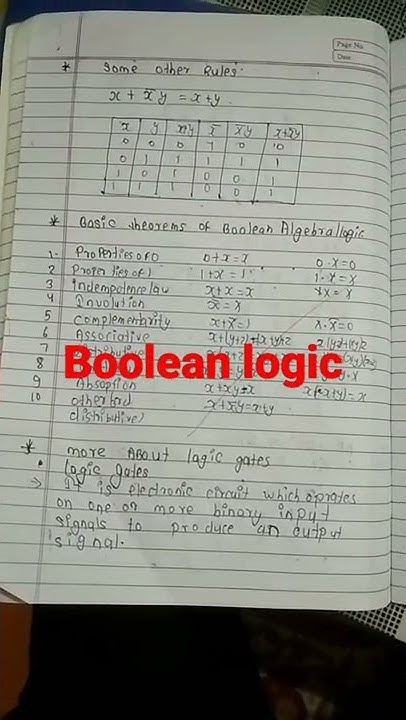 Page No.
Date
* Some other Rules:
x + x̄y = x+y.
x y x+y x̄ x̄y x+x̄y
0 0 0 1 0 0
0 1 1 1 1 1
1 0 1 0 0 1
1 1 1 0 0 1
* Basic theorems of Boolean Algebra/logic
1. Properties of 0 0+x=x 0·x=0
2 Properties of 1 1+x=1 1·x=x
3 indempotence law x+x=x xx=x
4 Involution
5 Complementarity x+x̄=1 x·x̄=0
6 Associative
7
8
Boolean logic
9 Absoption x+xy=x x(x+y)=x
10 other 3rd x+x̄y=x+y
distributive)
* more About logic gates
• logic gates
→ It is electronic circuit which oprates
on one or more binary input
signals to produce an output
signal.